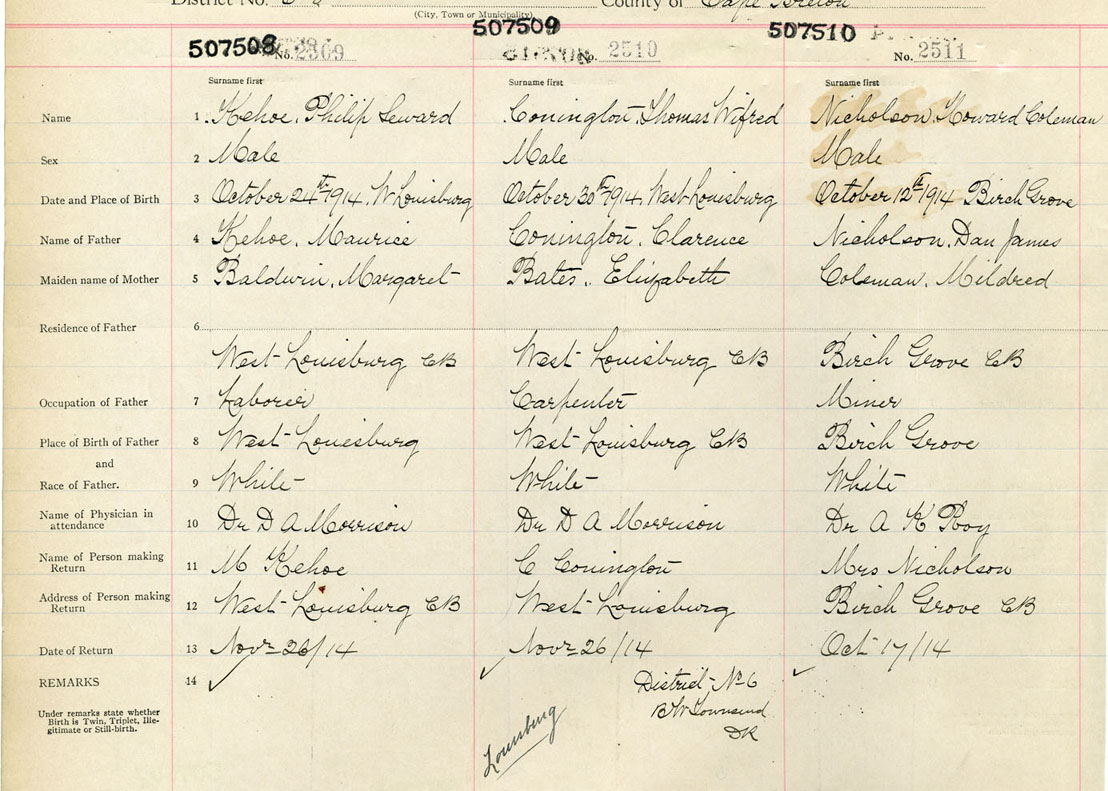 District No. County of Cape Breton
(City, Town or Municipality)
507508 No. 2509 507509 No. 2510 507510 No. 2511
Surname first Surname first Surname first
Name 1. Kehoe, Philip Seward Conington, Thomas Wifred Nicholson, Howard Coleman
Sex 2 Male Male Male
Date and Place of Birth 3 October 24th 1914, W Louisburg October 30th 1914, West Louisburg October 12th 1914 Birch Grove
Name of Father 4 Kehoe, Maurice Conington, Clarence Nicholson, Dan James
Maiden name of Mother 5 Baldwin, Margaret Bates, Elizabeth Coleman, Mildred
Residence of Father 6
West Louisburg CB West Louisburg CB Birch Grove CB
Occupation of Father 7 Laborer Carpenter Miner
Place of Birth of Father 8 West Louisburg West Louisburg CB Birch Grove
and
Race of Father. 9 White White White
Name of Physician in attendance 10 Dr D A Morrison Dr D A Morrison Dr A K Roy
Name of Person making Return 11 M Kehoe C Conington Mrs Nicholson
Address of Person making Return 12 West Louisburg CB West Louisburg Birch Grove CB
Date of Return 13 Novr 26/14 Novr 26/14 Oct 17/14
REMARKS 14
District No 6
Under remarks state whether
Birth is Twin, Triplet, Ille-
gitimate or Still-birth.
B W Townsend
DR
Louisburg